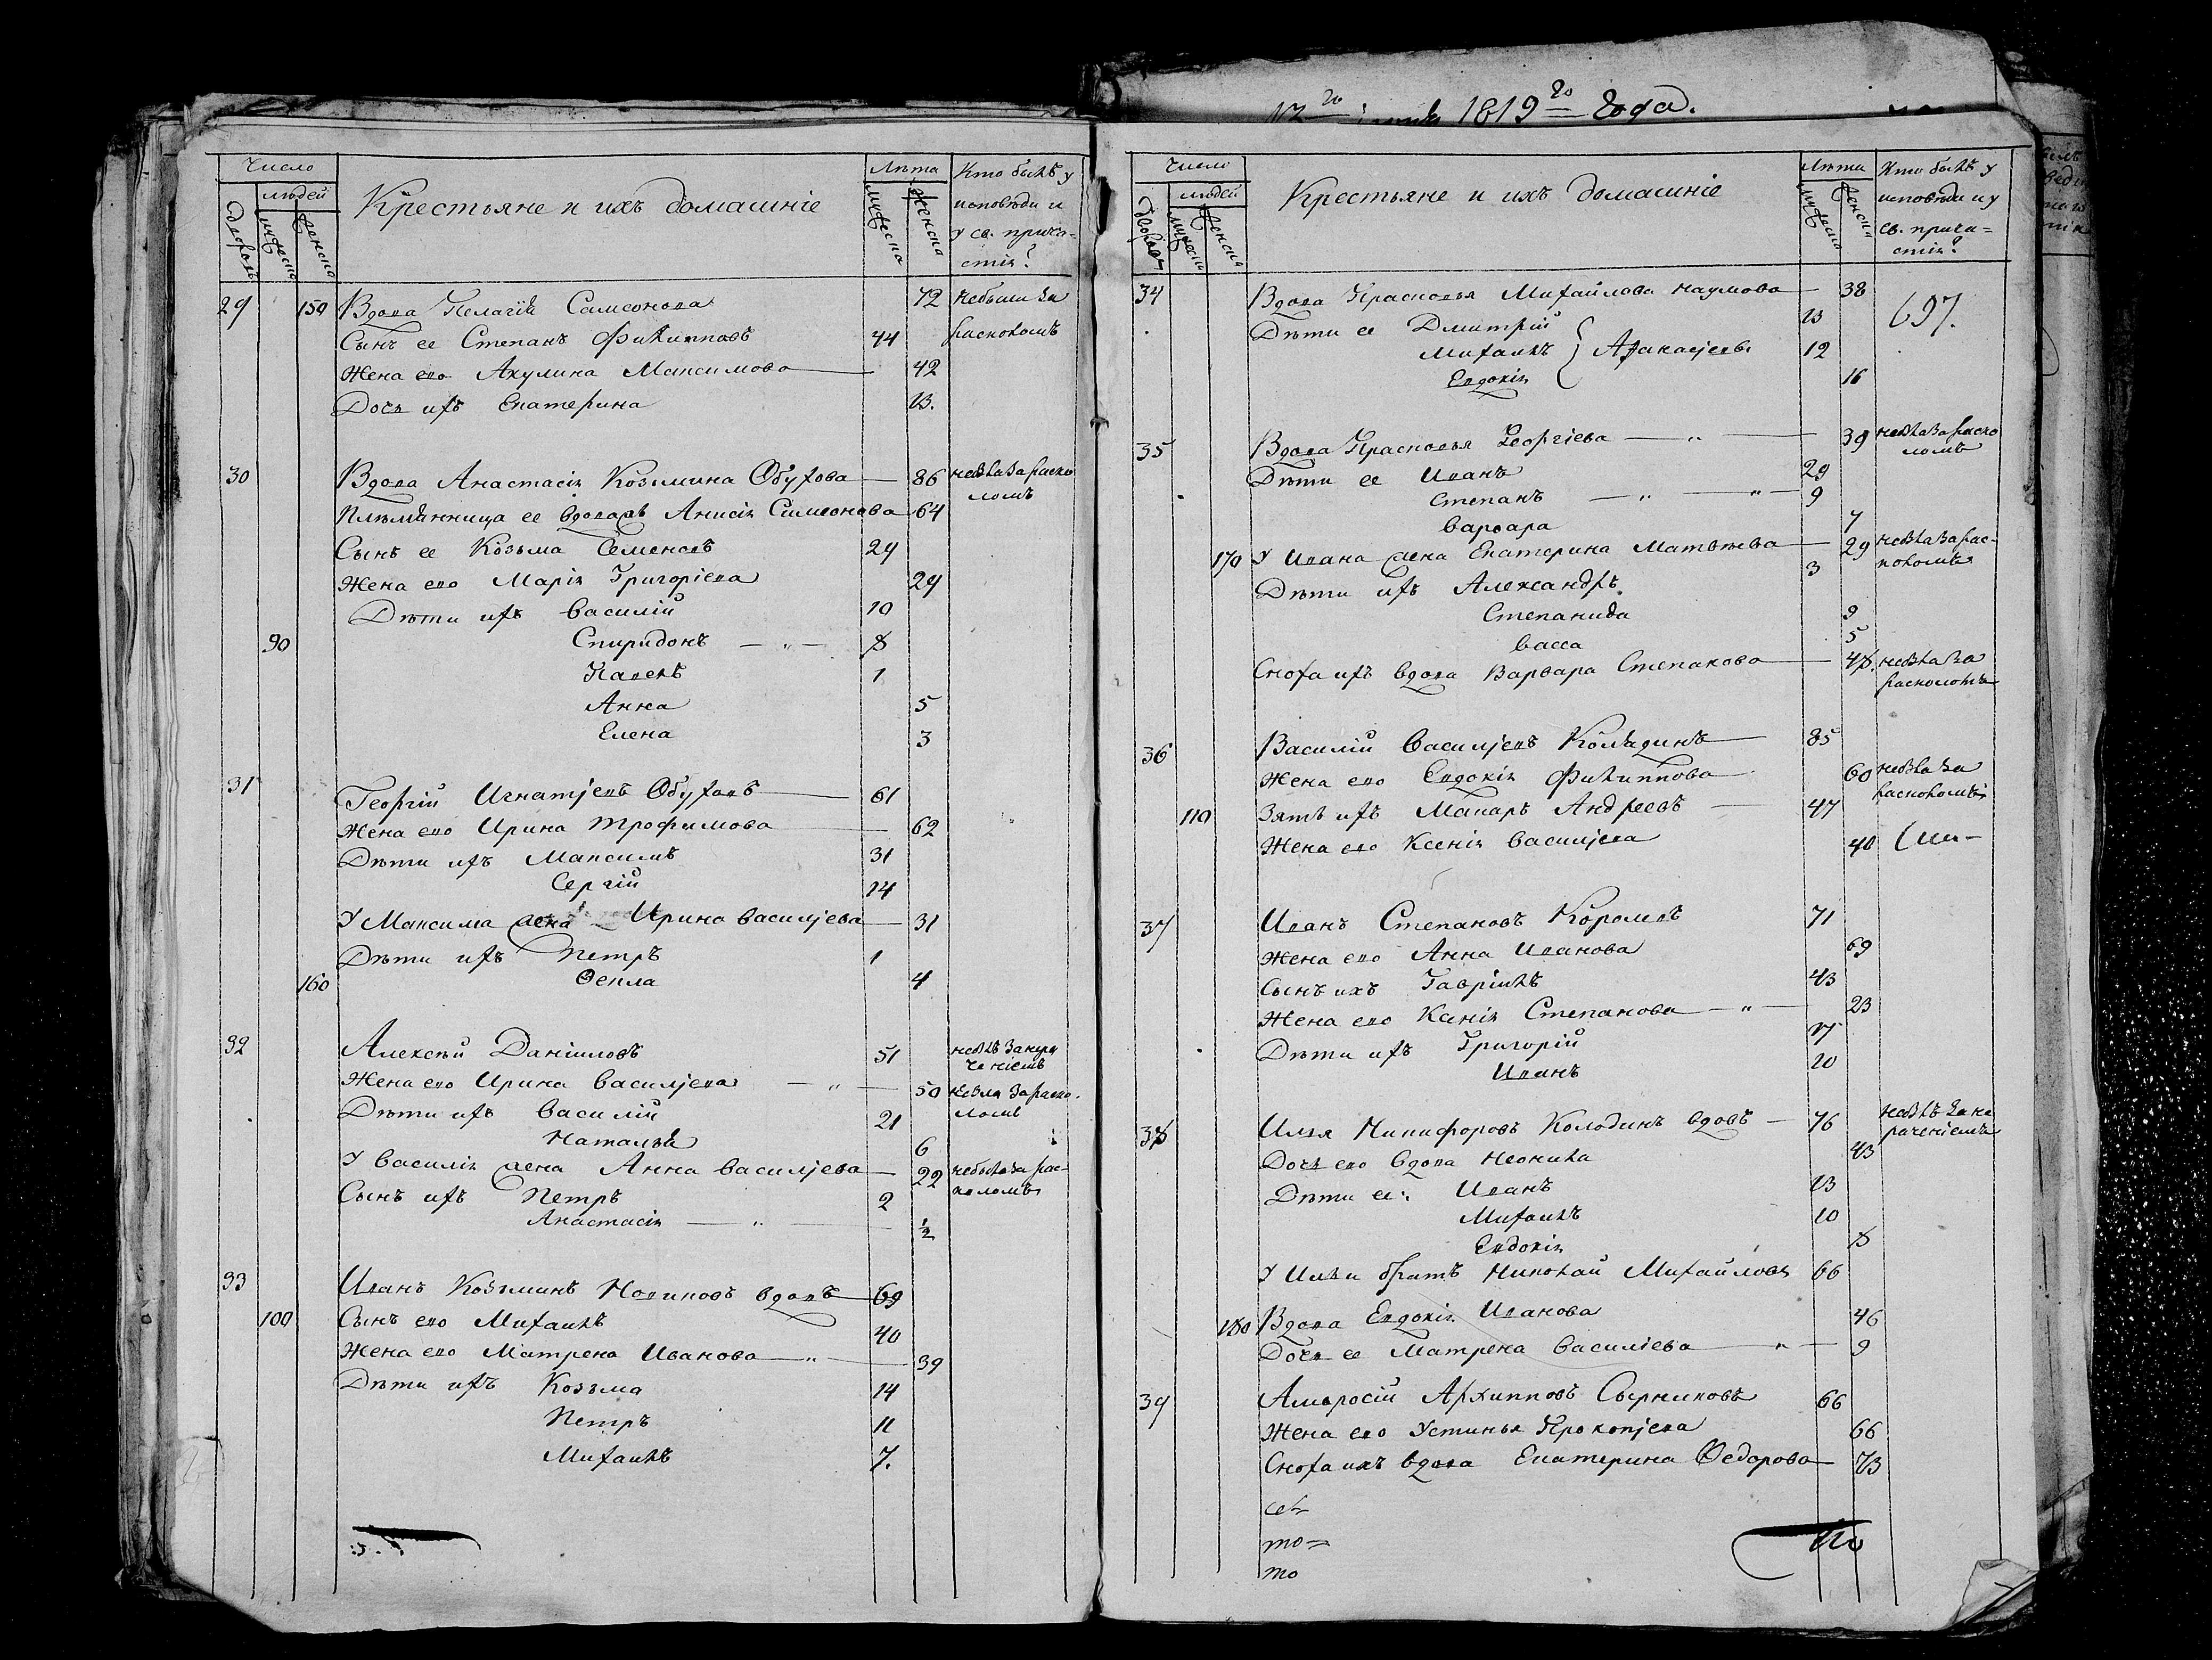 1819 го года.
Число
людей
Дворовъ
мужеска
женска
Крестьяне и ихъ домашніе
Лѣта
мужеска
женска
Кто былъ у
исповѣди и
у св. прича=
стія?
29 150 Вдова Пелагія Самсонова 72 небыли за
Сынъ ее Степанъ Филипповъ 44 расколомъ
Жена его Акулина Максимова 42
Дочь ихъ Екатерина 13.
30 Вдова Анастасія Козьмина Обухова 86 небыла за раско
ломъ
Племянница ее вдова Анисія Симеонова 64
Сынъ ее Козьма Семеновъ 29
Жена его Марія Григоріева 29
Дѣти ихъ Василій 10
90 Спиридонъ — „ — 8
Павелъ 1
Анна 5
Елена 3
31 Георгій Игнатьевъ Обуховъ 61
Жена его Ирина Трофимова 62
Дѣти ихъ Максимъ 31
Сергій 14
У Максима жена Ирина Васильева 31
Дѣти ихъ Петръ 1
160 Ѳекла 4
32 Алексѣй Даніиловъ 51
Жена его Ирина Васильева — „ — 50 небыла за раско-
ломъ
Дѣти ихъ Василій 21
Наталья 6
У Василія жена Анна Васильева 22 небыла за рас-
коломъ
Сынъ ихъ Петръ 2
Анастасія — „ — ½
33 Иванъ Козьминъ Новиковъ вдовъ 69
100 Сынъ его Михаилъ 40
Жена его Матрена Иванова — „ — 39
Дѣти ихъ Козьма 14
Петръ 11
Михаилъ 7.
Число
людей
Дворовъ
мужеска
женска
Крестьяне и ихъ домашніе
Лѣта
мужеска
женска
Кто былъ у
исповѣди и у
св. прича=
стія?
34 Вдова Прасковья Михайлова Наумова — 38
Дѣти ее Дмитрій 13
Михаилъ } Аѳанасьевы 12
Евдокія 16
35 Вдова Прасковья Георгіева — „ — 39 небыла за раско
ломъ
Дѣти ее Иванъ 29
Степанъ — „ — „ — 9
Варвара 7
170 У Ивана жена Екатерина Матвѣева — 29 небыла за рас-
коломъ
Дѣти ихъ Александръ 3
Степанида 9
Васса 5
Сноха ихъ вдова Варвара Степанова — 48 небыла за
расколомъ
36 Василій Васильевъ Колядинъ 85
Жена его Евдокія Филиппова 60 небыла за
расколомъ
110 Зять ихъ Макаръ Андреевъ — 47
Жена его Ксенія Васильева 40
37 Иванъ Степановъ 71
Жена его Анна Иванова 69
Сынъ ихъ Гавріилъ 43
Жена его Ксенія Степанова — „ — 23
Дѣти ихъ Григорій
Иванъ 10
38 Илья Никифоровъ Колодинъ вдовъ — 76 небылъ за не
раченіемъ
Дочь его вдова Неонила 43
Дѣти ее: Иванъ 13
Михаилъ 10
Евдокія 8
У Ильи братъ Николай Михайловъ 66
180 Вдова Евдокія Иванова 46
Дочь ее Матрена Василіева „ — 9
39 Амвросій Архипповъ Сырниковъ 66
Жена его Устинья Прокопьева 66
Сноха ихъ вдова Екатерина Ѳедорова — 73